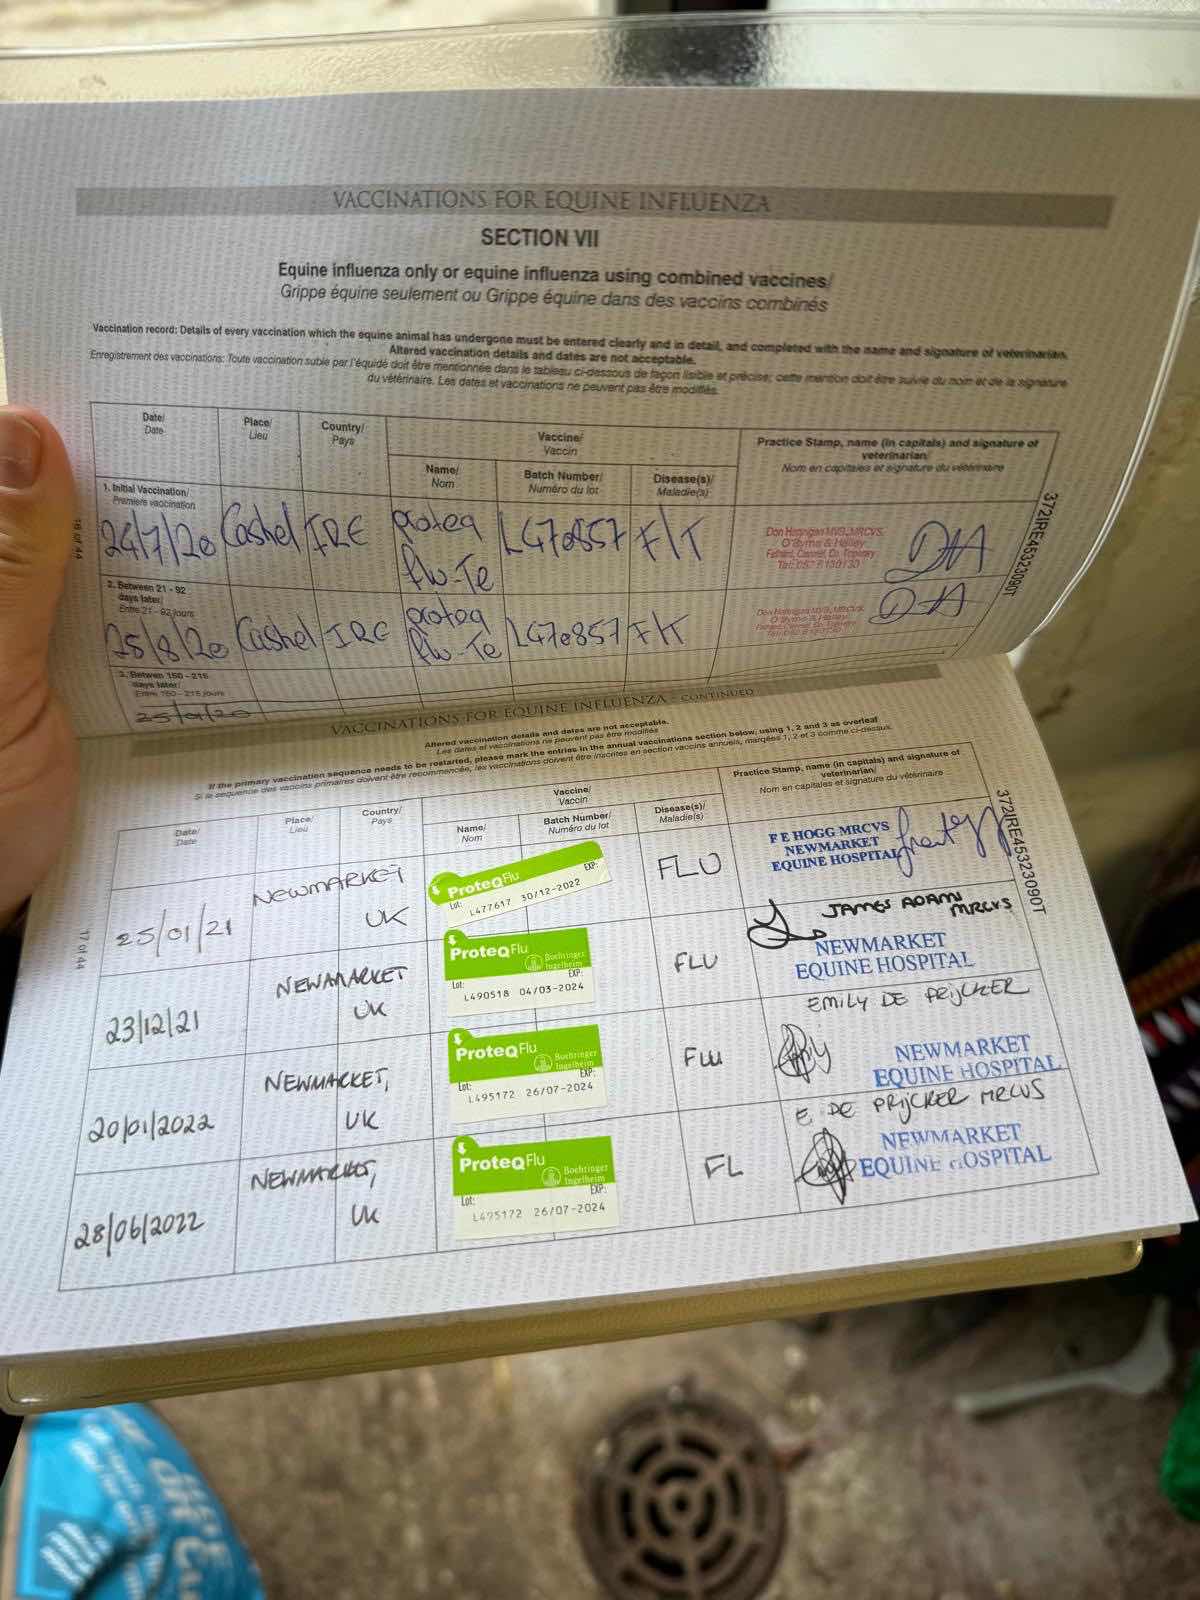 VACCINATIONS FOR EQUINE INFLUENZA
SECTION VII
Equine influenza only or equine influenza using combined vaccines/
Grippe équine seulement ou Grippe équine dans des vaccins combinés
Vaccination record: Details of every vaccination which the equine animal has undergone must be entered clearly and in detail, and completed with the name and signature of veterinarian.
Altered vaccination details and dates are not acceptable.
Enregistrement des vaccinations: Toute vaccination subie par l'équidé doit être mentionnée dans le tableau ci-dessous de façon lisible et précise; cette mention doit être suivie du nom et de la signature
du vétérinaire. Les dates et vaccinations ne peuvent pas être modifiés.
Date/
Date
Place/
Lieu
Country/
Pays
Vaccine/
Vaccin
Name/
Nom
Batch Number/
Numéro du lot
Disease(s)/
Maladie(s)
Practice Stamp, name (in capitals) and signature of
veterinarian/
Nom en capitales et signature du vétérinaire
1. Initial Vaccination/
Première vaccination
24/7/20 Cashel IRE proteq flu-Te L470857 F/T
Don Hannigan MVB, MRCVS.
O'Byrne & Halley
Fethard, Cashel, Co. Tipperary
2. Between 21 - 92
days later/
Entre 21 - 92 jours
25/8/20 Cashel IRE proteq flu-Te L470857 F/T
Don Hannigan MVB, MRCVS.
O'Byrne & Halley
3. Betwen 150 - 215
days later/
Entre 150 - 215 jours
25/01/20
16 of 44
372IRE45323090T
VACCINATIONS FOR EQUINE INFLUENZA - CONTINUED
Altered vaccination details and dates are not acceptable.
Les dates et vaccinations ne peuvent pas être modifiés
If the primary vaccination sequence needs to be restarted, please mark the entries in the annual vaccinations section below, using 1, 2 and 3 as overleaf
Si le sequence des vaccins primaires doivent être recommencée, les vaccinations doivent être inscrites en section vaccins annuels, marqées 1, 2 et 3 comme ci-dessus.
Date/
Date
Place/
Lieu
Country/
Pays
Vaccine/
Vaccin
Name/
Nom
Batch Number/
Numéro du lot
Disease(s)/
Maladie(s)
Practice Stamp, name (in capitals) and signature of
veterinarian/
Nom en capitales et signature du vétérinaire
25/01/21 NEWMARKET UK
ProteqFlu
Lot: EXP:
L477617 30/12-2022
FLU
F E HOGG MRCVS
NEWMARKET
EQUINE HOSPITAL
23/12/21 NEWMARKET UK
ProteqFlu
Boehringer
Ingelheim
Lot: EXP:
L490518 04/03-2024
FLU
JAMES ADAMS
MRCVS
NEWMARKET
EQUINE HOSPITAL
20/01/2022 NEWMARKET, UK
ProteqFlu
Boehringer
Ingelheim
Lot: EXP:
L495172 26/07-2024
FLU
EMILY DE PRIJCKER
NEWMARKET
EQUINE HOSPITAL
28/06/2022 NEWMARKET, UK
ProteqFlu
Boehringer
Ingelheim
Lot: EXP:
L495172 26/07-2024
FL
E. DE PRIJCKER MRCVS
NEWMARKET
EQUINE HOSPITAL
17 of 44
372IRE45323090T